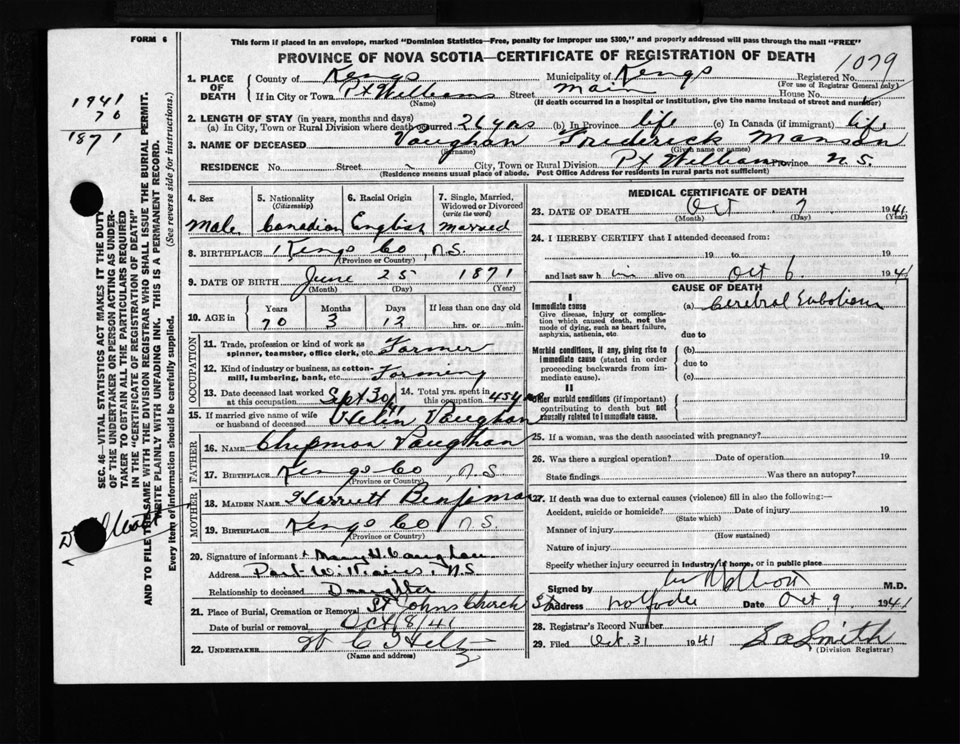 FORM 6
This form if placed in an envelope, marked "Dominion Statistics—Free, penalty for improper use $300," and properly addressed will pass through the mail "FREE"
PROVINCE OF NOVA SCOTIA—CERTIFICATE OF REGISTRATION OF DEATH
1079
1941
70
1871
1. PLACE OF DEATH
County of Kings Municipality of Kings Registered No.
(For use of Registrar General only)
If in City or Town Pt Williams Street Main House No.
(Name) (If death occurred in a hospital or institution, give the name instead of street and number)
2. LENGTH OF STAY (in years, months and days)
(a) In City, Town or Rural Division where death occurred 26 yrs (b) In Province life (c) In Canada (if immigrant) life
3. NAME OF DECEASED Vaughan Frederick Manson
(Surname) (Given name or names)
RESIDENCE No. Street City, Town or Rural Division Pt Williams Province N.S.
(Residence means usual place of abode. Post Office Address for residents in rural parts not sufficient)
4. Sex 5. Nationality (Citizenship) 6. Racial Origin 7. Single, Married, Widowed or Divorced (write the word)
Male Canadian English Married
8. BIRTHPLACE Kings Co, N.S.
(Province or Country)
9. DATE OF BIRTH June 25 1871
(Month) (Day) (Year)
10. AGE in Years Months Days If less than one day old
70 3 12 hrs. or min.
OCCUPATION
11. Trade, profession or kind of work as spinner, teamster, office clerk, etc. Farmer
12. Kind of industry or business, as cotton-mill, lumbering, bank, etc. Farming
13. Date deceased last worked at this occupation Sept 30/41 14. Total yrs. spent in this occupation 45 yrs
15. If married give name of wife or husband of deceased Helen Vaughan
FATHER
16. NAME Chipman Vaughan
17. BIRTHPLACE Kings Co, N.S.
(Province or Country)
MOTHER
18. MAIDEN NAME Harriett Benjiman
19. BIRTHPLACE Kings Co N.S.
(Province or Country)
20. Signature of informant Mary H. Vaughan
Address Port Williams, N.S.
Relationship to deceased Daughter
21. Place of Burial, Cremation or Removal St Johns Church
Date of burial or removal Oct 8/41
22. UNDERTAKER W C
(Name and address)
MEDICAL CERTIFICATE OF DEATH
23. DATE OF DEATH Oct 7 1941
(Month) (Day) (Year)
24. I HEREBY CERTIFY that I attended deceased from:
19 to 19
and last saw h im alive on Oct 6 1941
CAUSE OF DEATH
I
Immediate cause (a) Cerebral Embolism
Give disease, injury or complication which caused death, not the mode of dying, such as heart failure, asphyxia, asthenia, etc. due to
Morbid conditions, if any, giving rise to immediate cause (stated in order proceeding backwards from immediate cause). (b)
due to
(c)
II
Other morbid conditions (if important) contributing to death but not causally related to immediate cause.
25. If a woman, was the death associated with pregnancy?
26. Was there a surgical operation? Date of operation 19
State findings Was there an autopsy?
27. If death was due to external causes (violence) fill in also the following:—
Accident, suicide or homicide? Date of injury 19
(State which)
Manner of injury
(How sustained)
Nature of injury
Specify whether injury occurred in industry, in home, or in public place
Signed by M.D.
Address Wolfville Date Oct 9 1941
28. Registrar's Record Number
29. Filed Oct. 31 1941 Smith
(Division Registrar)
SEC. 46—VITAL STATISTICS ACT MAKES IT THE DUTY OF THE UNDERTAKER OR PERSON ACTING AS UNDERTAKER TO OBTAIN ALL THE PARTICULARS REQUIRED IN THE "CERTIFICATE OF REGISTRATION OF DEATH"
AND TO FILE THE SAME WITH THE DIVISION REGISTRAR WHO SHALL ISSUE THE BURIAL PERMIT.
WRITE PLAINLY WITH UNFADING INK. THIS IS A PERMANENT RECORD.
Every item of information should be carefully supplied. (See reverse side for instructions.)